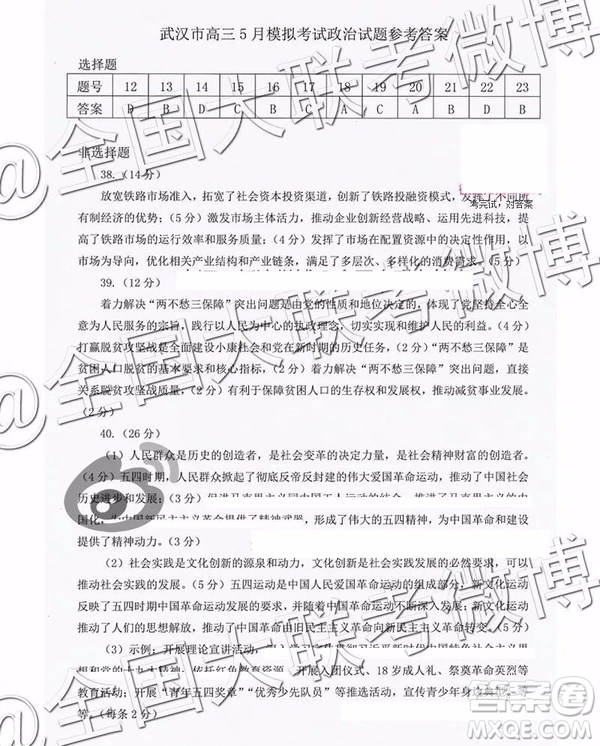 武汉市高三5月模拟考试政治试题参考答案
选择题
题号 12 13 14 15 16 17 18 19 20 21 22 23
答案 D B D C B C A C A B D B
非选择题
38.（14分）
考完试，对答案
放宽铁路市场准入，拓宽了社会资本投资渠道，创新了铁路投融资模式，发挥了不同所
有制经济的优势；（5分）激发市场主体活力，推动企业创新经营战略、运用先进科技，提
高了铁路市场的运行效率和服务质量；（4分）发挥了市场在配置资源中的决定性作用，以
市场为导向，优化相关产业结构和产业链条，满足了多层次、多样化的消费需求。（5分）
39.（12分）
着力解决“两不愁三保障”突出问题是由党的性质和地位决定的，体现了党坚持全心全
意为人民服务的宗旨，践行以人民为中心的执政理念，切实实现和维护人民的利益。（4分）
打赢脱贫攻坚战是全面建设小康社会和党在新时期的历史任务，（2分）“两不愁三保障”是
贫困人口脱贫的基本要求和核心指标，（2分）着力解决“两不愁三保障”突出问题，直接
关系脱贫攻坚战质量，（2分）有利于保障贫困人口的生存权和发展权，推动减贫事业发展。
（2分）
40.（26分）
（1）人民群众是历史的创造者，是社会变革的决定力量，是社会精神财富的创造者。
（4分）五四时期，人民群众掀起了彻底反帝反封建的伟大爱国革命运动，推动了中国社会
历史进步和发展；（3分）促进马克思主义同中国工人运动相结合，推进了马克思主义的中
国化，为中国新民主主义革命提供了精神武器，形成了伟大的五四精神，为中国革命和建设
提供了精神动力。（3分）
（2）社会实践是文化创新的源泉和动力，文化创新是社会实践发展的必然要求，可以
推动社会实践的发展。（5分）五四运动是中国人民爱国革命运动的组成部分，新文化运动
反映了五四时期中国革命运动发展的要求，并随着中国革命运动不断深入发展；新文化运动
推动了人们的思想解放，推动了中国革命由旧民主主义革命向新民主主义革命转变。（5分）
（3）示例：开展理论宣讲活动，
想和党的十九大精神；依托红色教育资源，开展入团仪式、18岁成人礼、祭奠革命英烈等
教育活动；开展“青年五四奖章”“优秀少先队员”等推选活动，宣传青少年
等。（每条2分）
@全国大联考微博
@全国大联考微博
答案卷
MXQE.COM